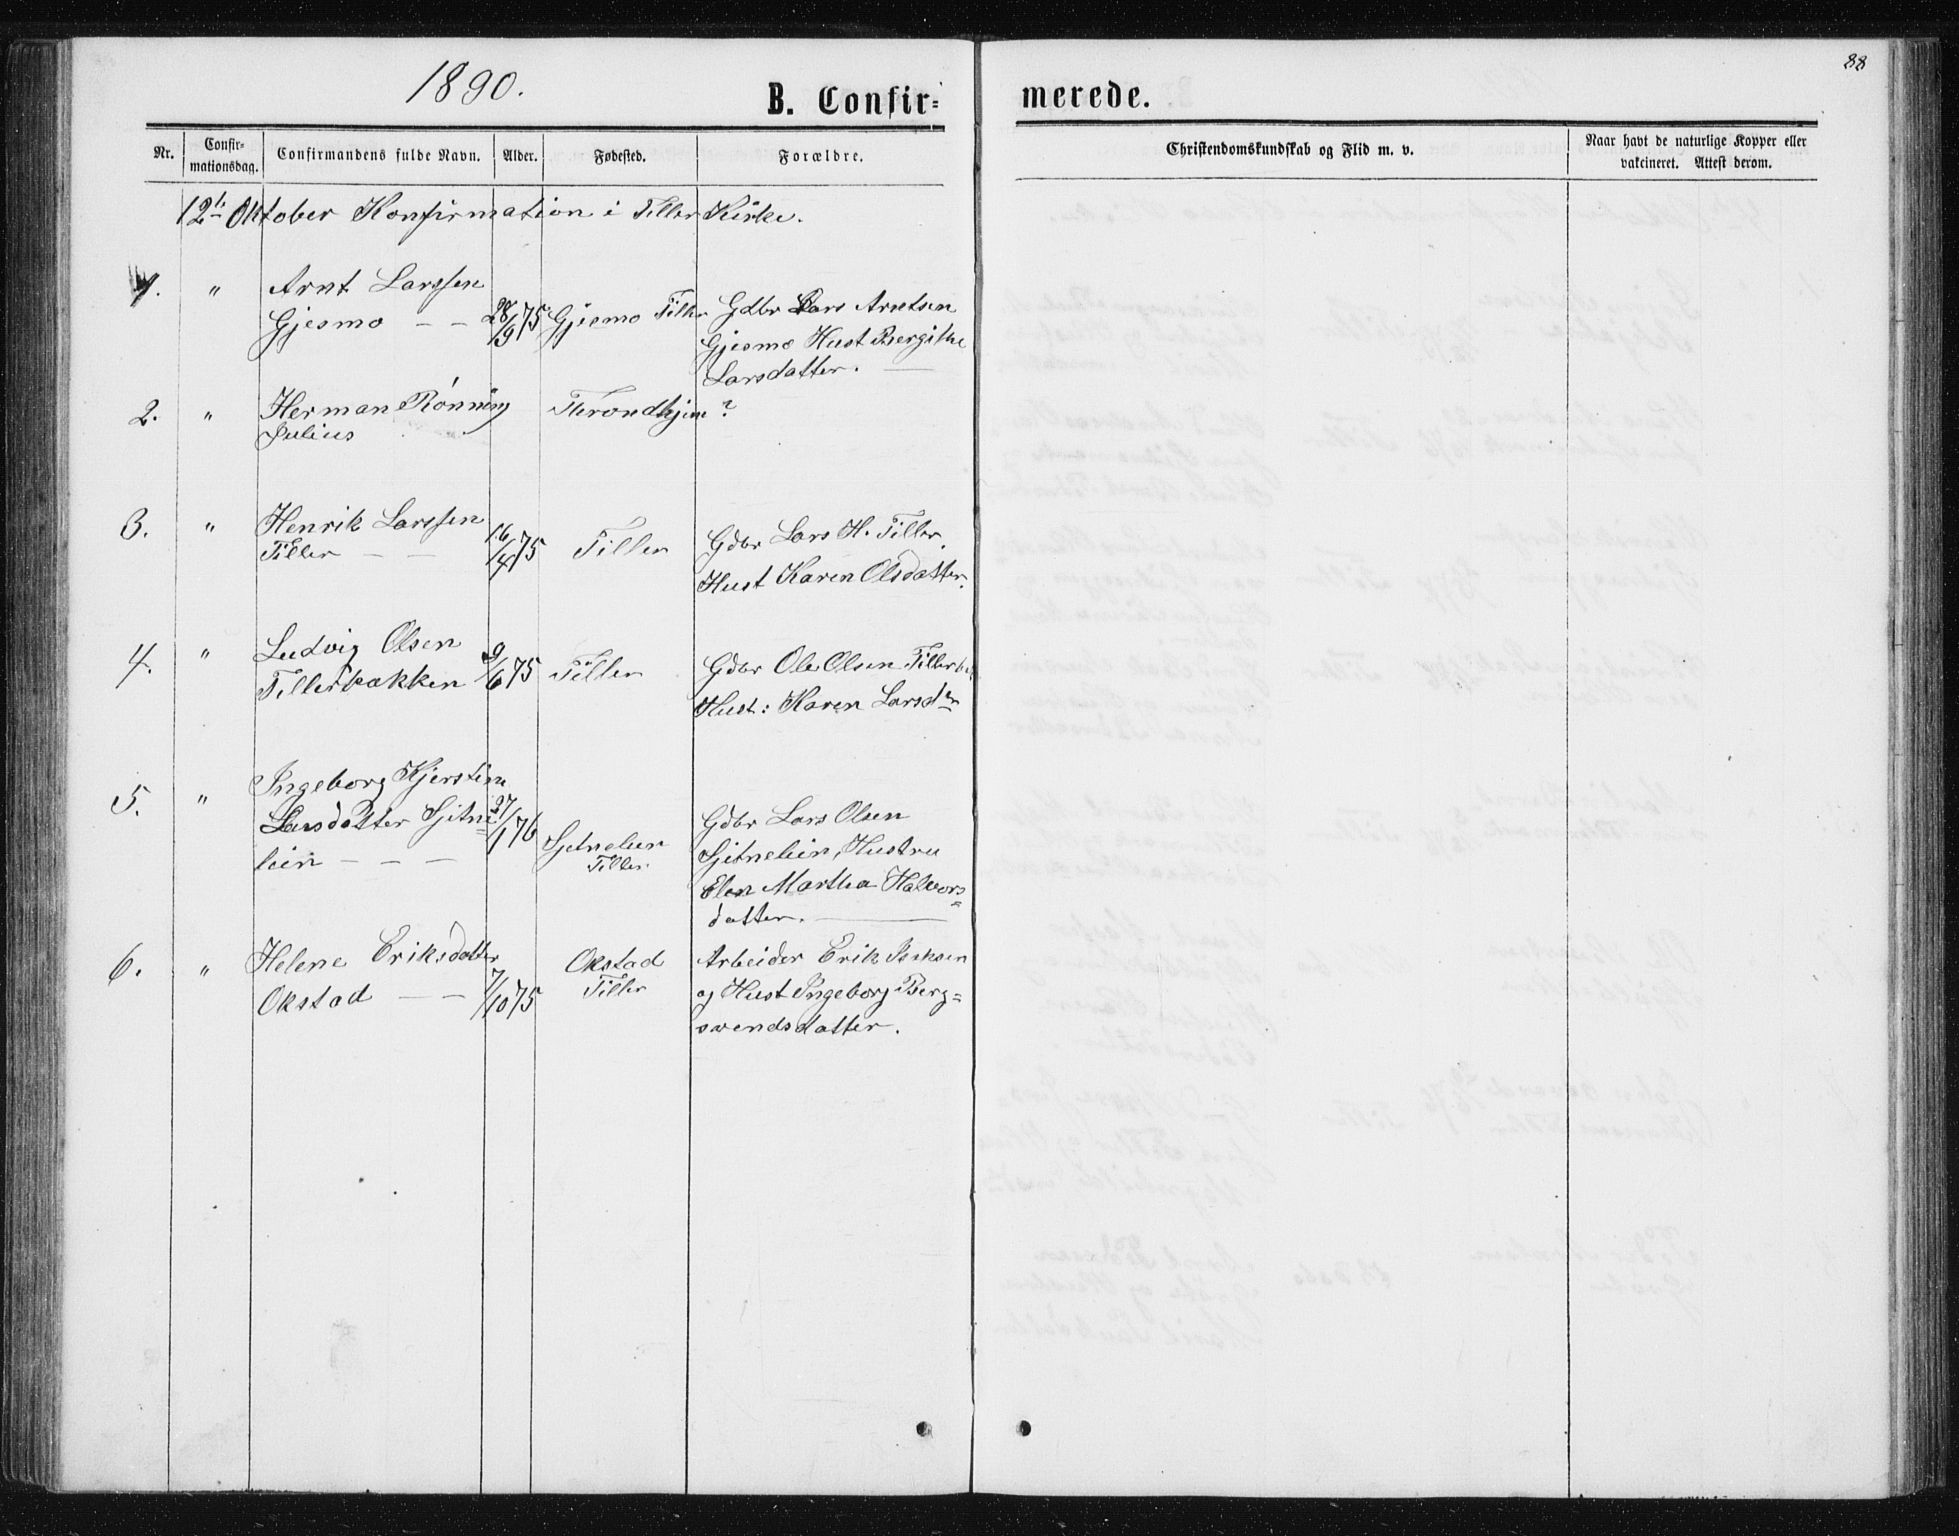 1890.
B. Confir=
merede.
88
Nr.
Confir-
mationsdag.
Confirmandens fulde Navn.
Alder.
Fødested.
Forældre.
Christendomskundskab og Flid m. v.
Naar havt de naturlige Kopper eller
vakcineret. Attest derom.
12te Oktober Konfirmation i Tiller Kirke.
1. " Arnt Larssen
Gjesmo — — 28/9 75 Gjesmo Tiller
Gdbr Lars Arntsen
Gjesmo Hust Bergithe
Larsdatter. —
2. " Herman Rønning
Julius
Throndhjem ?
3. " Henrik Larssen
Tiller — — 16/4 75 Tiller
Gdbr Lars H. Tiller.
Hust Karen Olsdatter.
4. " Ludvig Olsen
Tillerbakken 9/6 75 Tiller
Gdbr Ole Olsen Tillerb
Hust: Karen Larsdtr
5. " Ingeborg Kjerstine
Larsdatter Sjetne=
lein — — — 27/1 76 Sjetnelein
Tiller
Gdbr Lars Olsen
Sjetnelein, Hustru
Elen Martha Halvors=
datter. —
6. " Helene Eriksdatter
Okstad — — 7/10 75 Okstad
Tiller
Arbeider Erik
og Hust Ingeborg Berg=
svendsdatter.